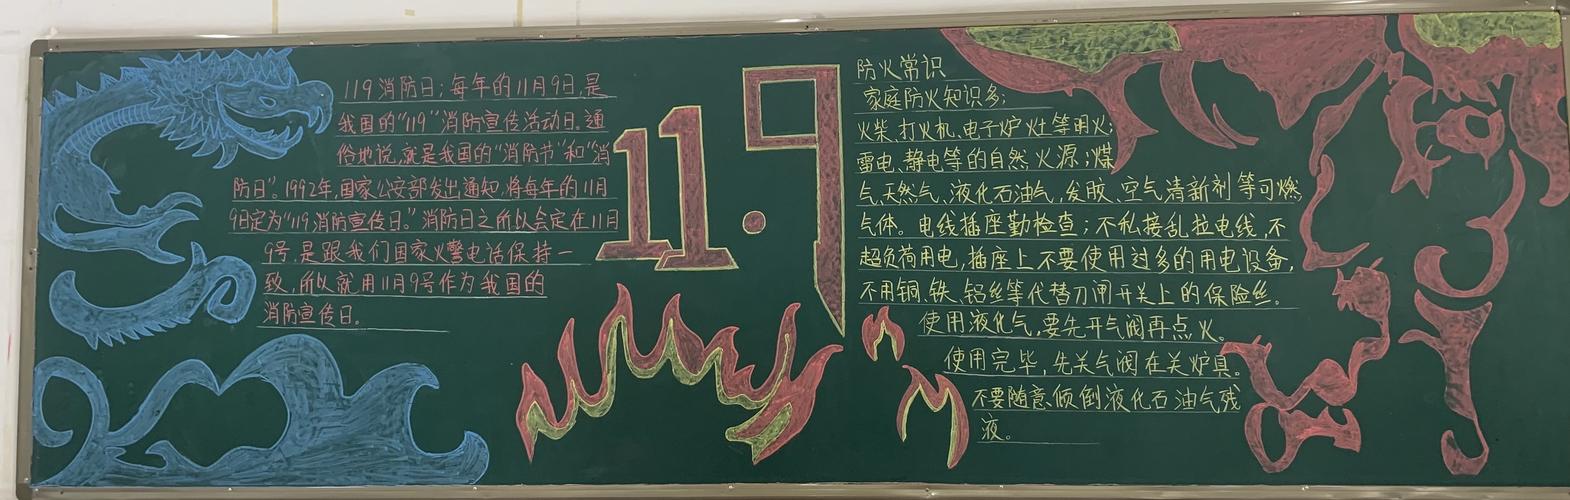 119消防日：每年的11月9日，是
我国的“119”消防宣传活动日。通
俗地说，就是我国的“消防节”和“消
防日”。1992年，国家公安部发出通知，将每年的11月
9日定为“119消防宣传日。”消防日之所以会定在11月
9号，是跟我们国家火警电话保持一
致，所以就用11月9号作为我国的
消防宣传日。
11.9
防火常识
家庭防火知识多：
火柴、打火机、电子炉灶等明火；
雷电、静电等的自然火源；煤
气、天然气、液化石油气，发胶、空气清新剂等可燃
气体。电线插座勤检查；不私接乱拉电线，不
超负荷用电，插座上不要使用过多的用电设备，
不用铜、铁、铝丝等代替刀闸开关上的保险丝。
使用液化气，要先开气阀再点火。
使用完毕，先关气阀在关炉具。
不要随意倾倒液化石油气残
液。